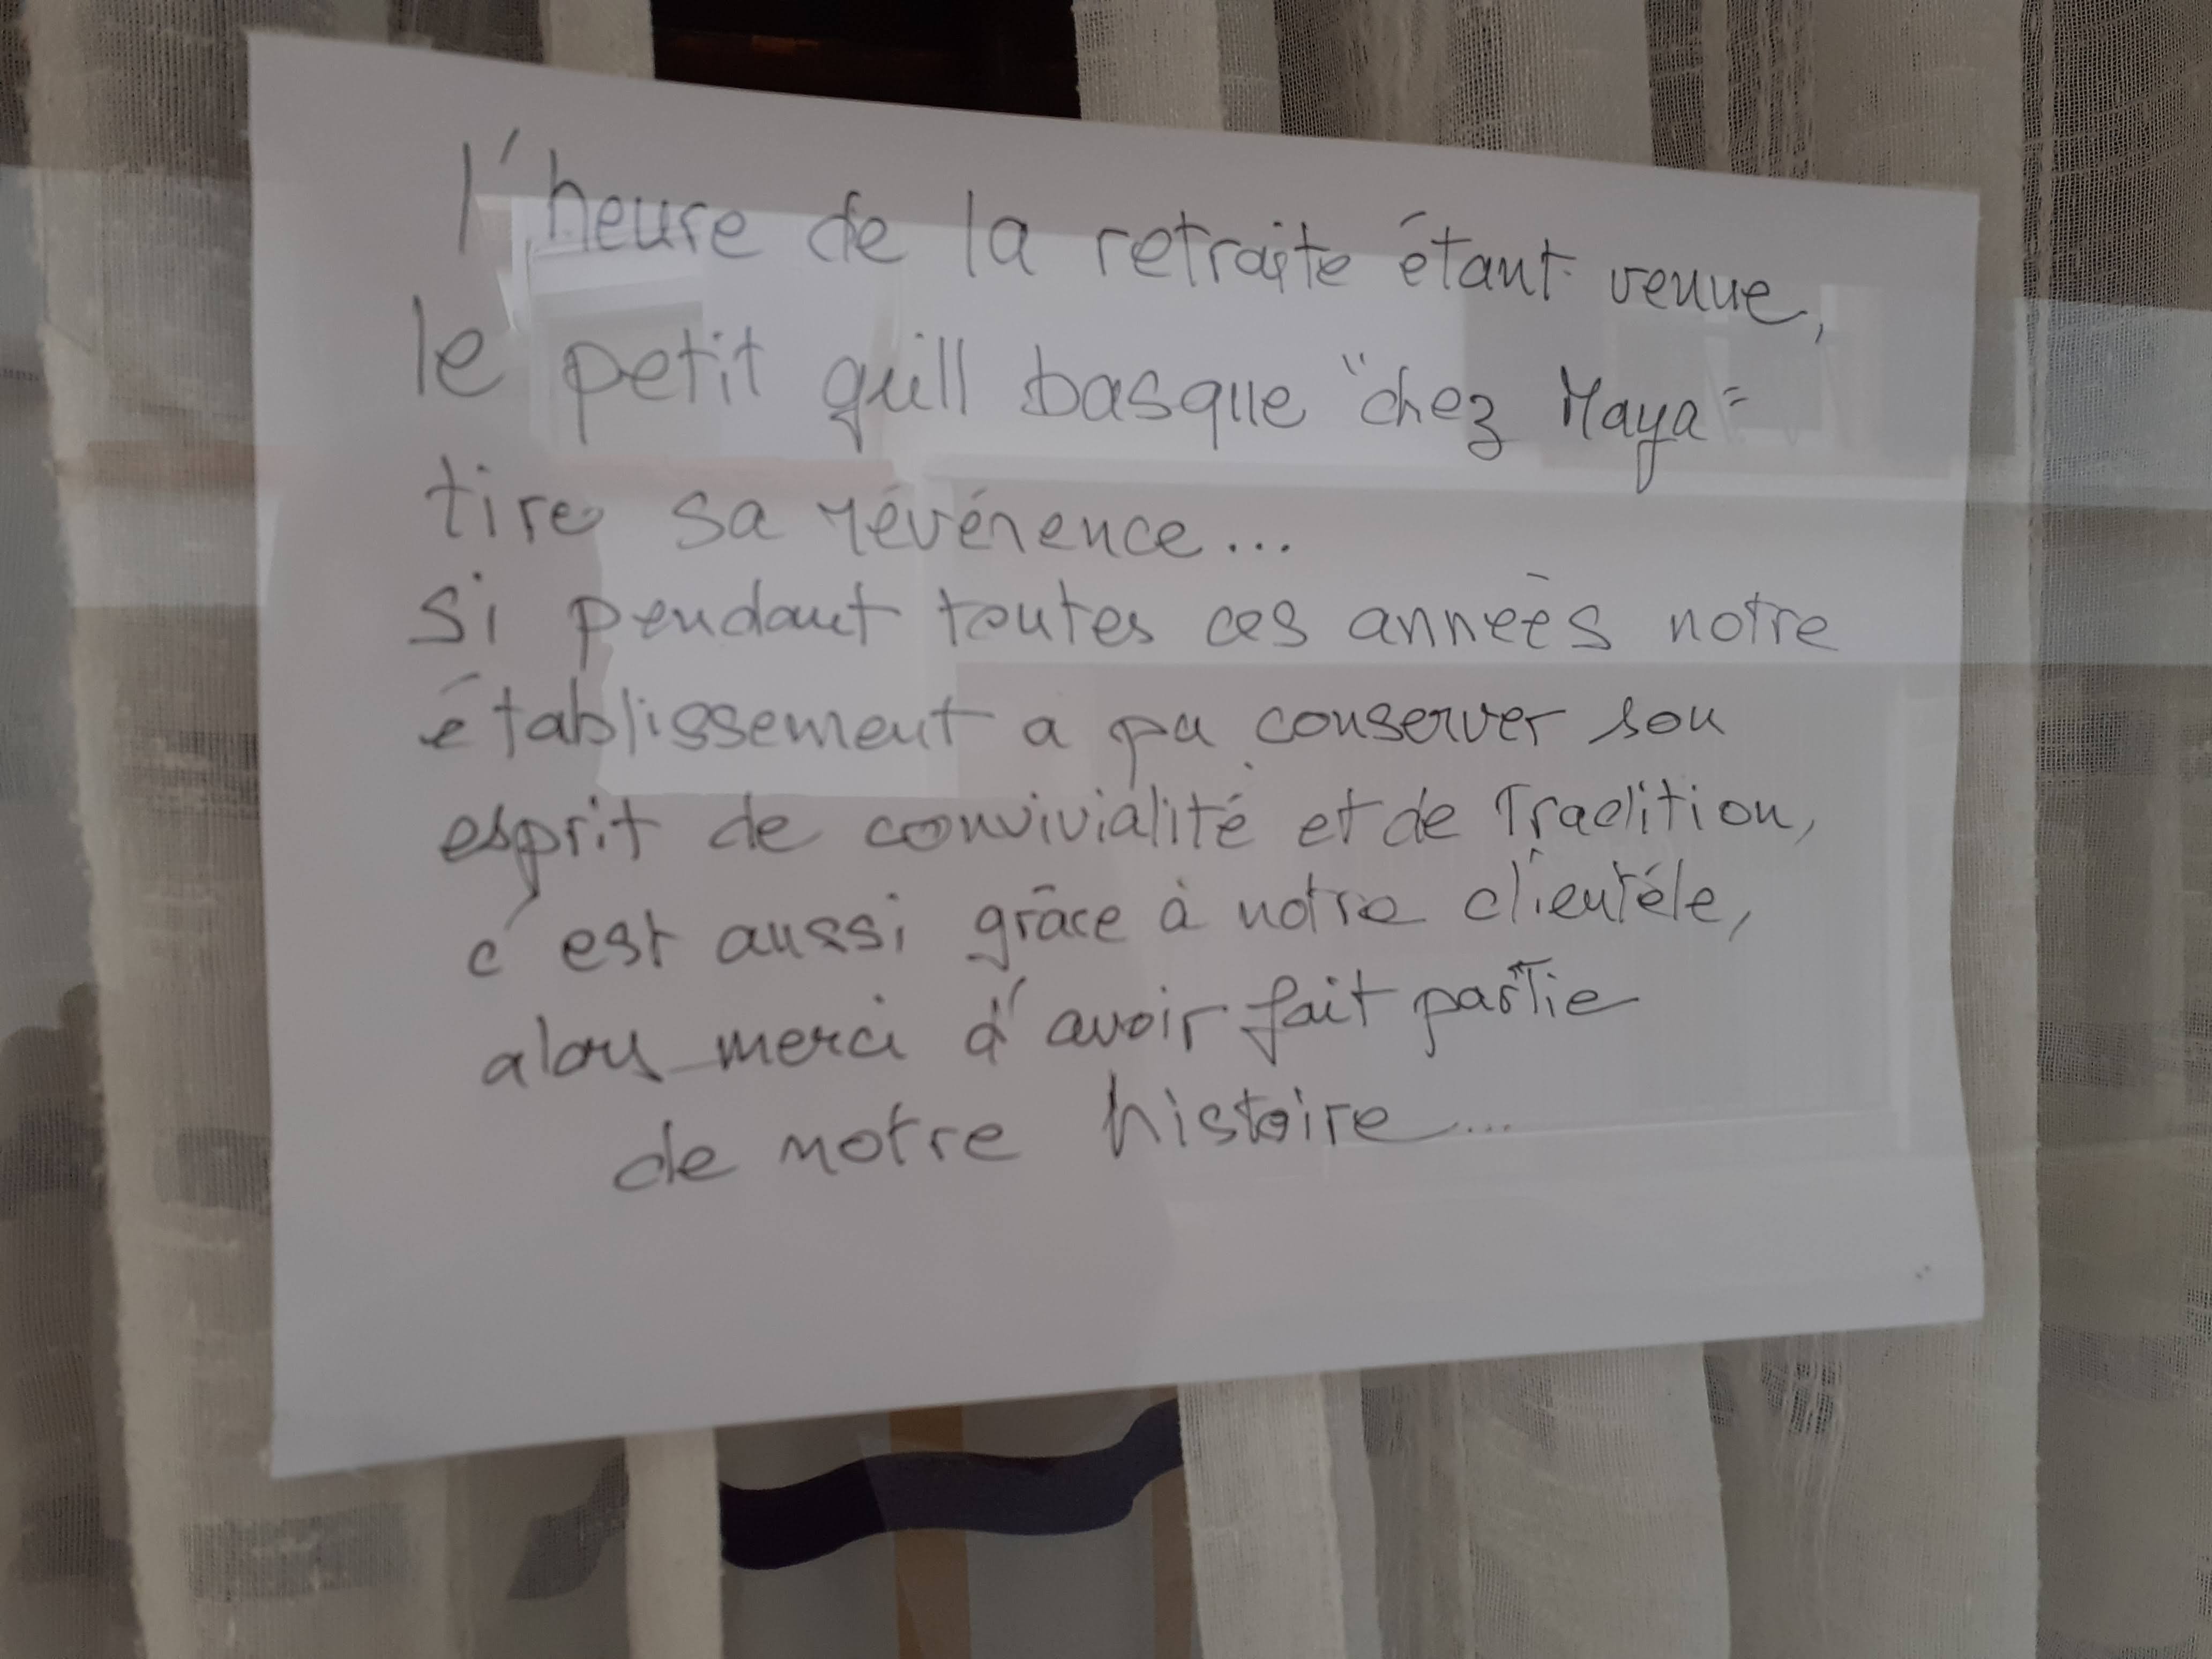 l'heure de la retraite étant venue,
le petit grill basque "chez Maya"
tire sa révérence...
si pendant toutes ces années notre
établissement a pu conserver son
esprit de convivialité et de Tradition,
c'est aussi grâce à notre clientèle,
alors merci d'avoir fait partie
de notre histoire...